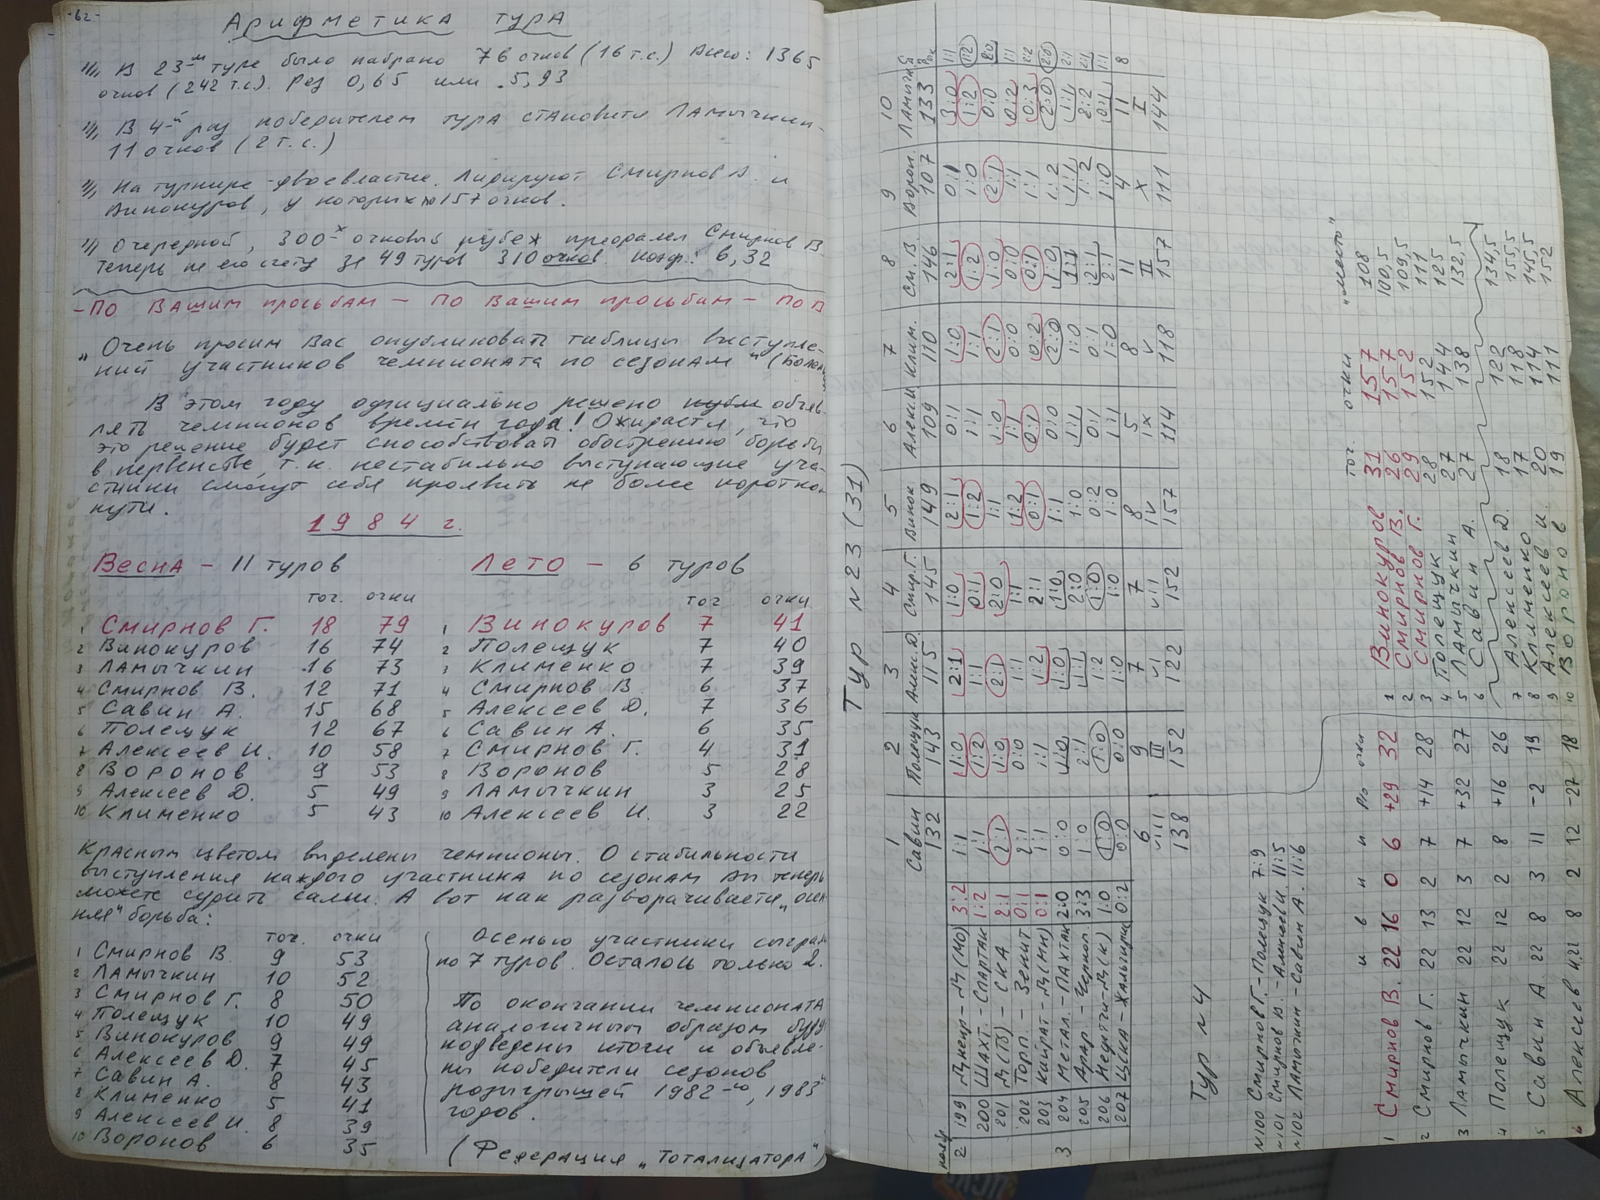 -62-
Арифметика тура
В 23-м туре было набрано 76 очков (16 т.с.) Всего: 1365
очков (242 т.с.). Рез 0,65 или 5,93
В 4-й раз победителем тура становится Ламычкин -
11 очков (2 т.с.)
На турнире - двоевластие. Лидируют Смирнов В. и
Винокуров, у которых по 157 очков.
Очередной, 300-х очковый рубеж преодолел Смирнов В.
Теперь на его счету за 49 туров 310 очков. Коэф.: 6,32
- По Вашим просьбам - По Вашим просьбам - По В
„Очень просим Вас опубликовать таблицы выступле-
ний участников чемпионата по сезонам" (Болель
В этом году официально решено объяв-
лять чемпионов времён года! Ожидается, что
это решение будет способствовать обострению борьбы
в первенстве, т.к. нестабильно выступающие уча-
стники смогут себя проявить на более коротком
пути.
1984 г.
Весна - 11 туров
точ. очки
1 Смирнов Г. 18 79
2 Винокуров 16 74
3 Ламычкин 16 73
4 Смирнов В. 12 71
5 Савин А. 15 68
6 Полещук 12 67
7 Алексеев И. 10 58
8 Воронов 9 53
9 Алексеев Д. 5 49
10 Клименко 5 43
Лето - 6 туров
точ очки
1 Винокуров 7 41
2 Полещук 7 40
3 Клименко 7 39
4 Смирнов В 6 37
5 Алексеев Д. 7 36
6 Савин А. 6 35
7 Смирнов Г. 4 31
8 Воронов 5 28
9 Ламычкин 3 25
10 Алексеев И. 3 22
Красным цветом выделены чемпионы. О стабильности
выступления каждого участника по сезонам вы теперь
можете судить сами. А вот как разворачивается „осен
няя" борьба:
точ. очки
1 Смирнов В. 9 53
2 Ламычкин 10 52
3 Смирнов Г. 8 50
4 Полещук 10 49
5 Винокуров 9 49
6 Алексеев Д. 7 45
7 Савин А. 8 43
8 Клименко 5 41
9 Алексеев И. 8 39
10 Воронов 6 35
Осенью участники сыграли
по 7 туров. Осталось только 2.
По окончании чемпионата
аналогичным образом буду
подведены итоги и объявле-
ны победители сезонов
розыгрышей 1982-го, 1983
годов.
(Федерация „Тотализатора"
Тур №23 (31)
1 2 3 4 5 6 7 8 9 10
Савин Полещук Алек.Д. Смир.Г. Винок. Алек.И Клим. См.В. Ворон. Ламычк
132 143 115 145 149 109 110 146 107 133
199 Днепр - Д(Мо) 3:2 1:1 1:0 2:1 1:0 2:1 0:1 1:0 2:1 0:1 3:0 1:1
200 Шахт - Спартак 1:2 1:1 1:2 1:1 0:1 1:2 1:1 1:1 1:2 1:0 1:2
201 Д(Тб) - СКА 2:1 2:1 1:0 2:1 2:0 1:1 1:0 2:1 1:0 2:1 0:0
202 Торп. - Зенит 0:1 2:1 0:0 1:1 1:1 1:2 1:1 0:0 0:0 1:1 0:2 1:1
203 Кайрат - Д(Мн) 0:1 1:1 1:1 1:2 2:1 0:1 0:1 0:2 0:1 1:1 0:3
204 Метал. - Пахтак 2:0 0:0 1:0 1:0 1:0 1:1 0:0 2:0 1:0 1:2 2:0
205 Арар - Черном. 3:3 1:0 2:1 1:1 2:0 1:0 1:1 1:0 1:1 1:1 1:1
206 Нефтчи - Д(К) 1:0 1:0 1:0 1:2 1:0 0:2 0:1 0:1 2:1 1:2 2:2
207 ЦСКА - Жальгирис 0:2 0:0 0:0 1:0 1:0 1:0 1:1 1:0 2:1 1:0 0:1 1:1
6 9 7 7 8 5 8 11 4 11 8
VIII III VI VII IV IX V II X I
138 152 122 152 157 114 118 157 111 144
Тур №4
№100 Смирнов Г. - Полещук 7:9
№101 Смирнов В. - Алексеев И. 11:5
№102 Ламычкин - Савин А. 11:6
и в н п р/о очки
1 Смирнов В. 22 16 0 6 +29 32
2 Смирнов Г. 22 13 2 7 +14 28
3 Ламычкин 22 12 3 7 +32 27
4 Полещук 22 12 2 8 +16 26
5 Савин А. 22 8 3 11 -2 19
6 Алексеев И. 22 8 2 12 -27 18
точ очки „место"
1 Винокуров 31 157 108
2 Смирнов В. 26 157 100,5
3 Смирнов Г. 29 152 109,5
4 Полещук 28 152 111
5 Ламычкин 27 144 125
6 Савин А. 27 138 132,5
7 Алексеев Д. 18 122 134,5
8 Клименко 17 118 155,5
9 Алексеев И. 20 114 145,5
10 Воронов 19 111 152